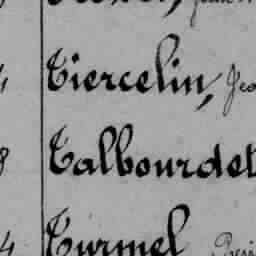 Tiercelin, Jea
8 Talbourdet
4 Turmel